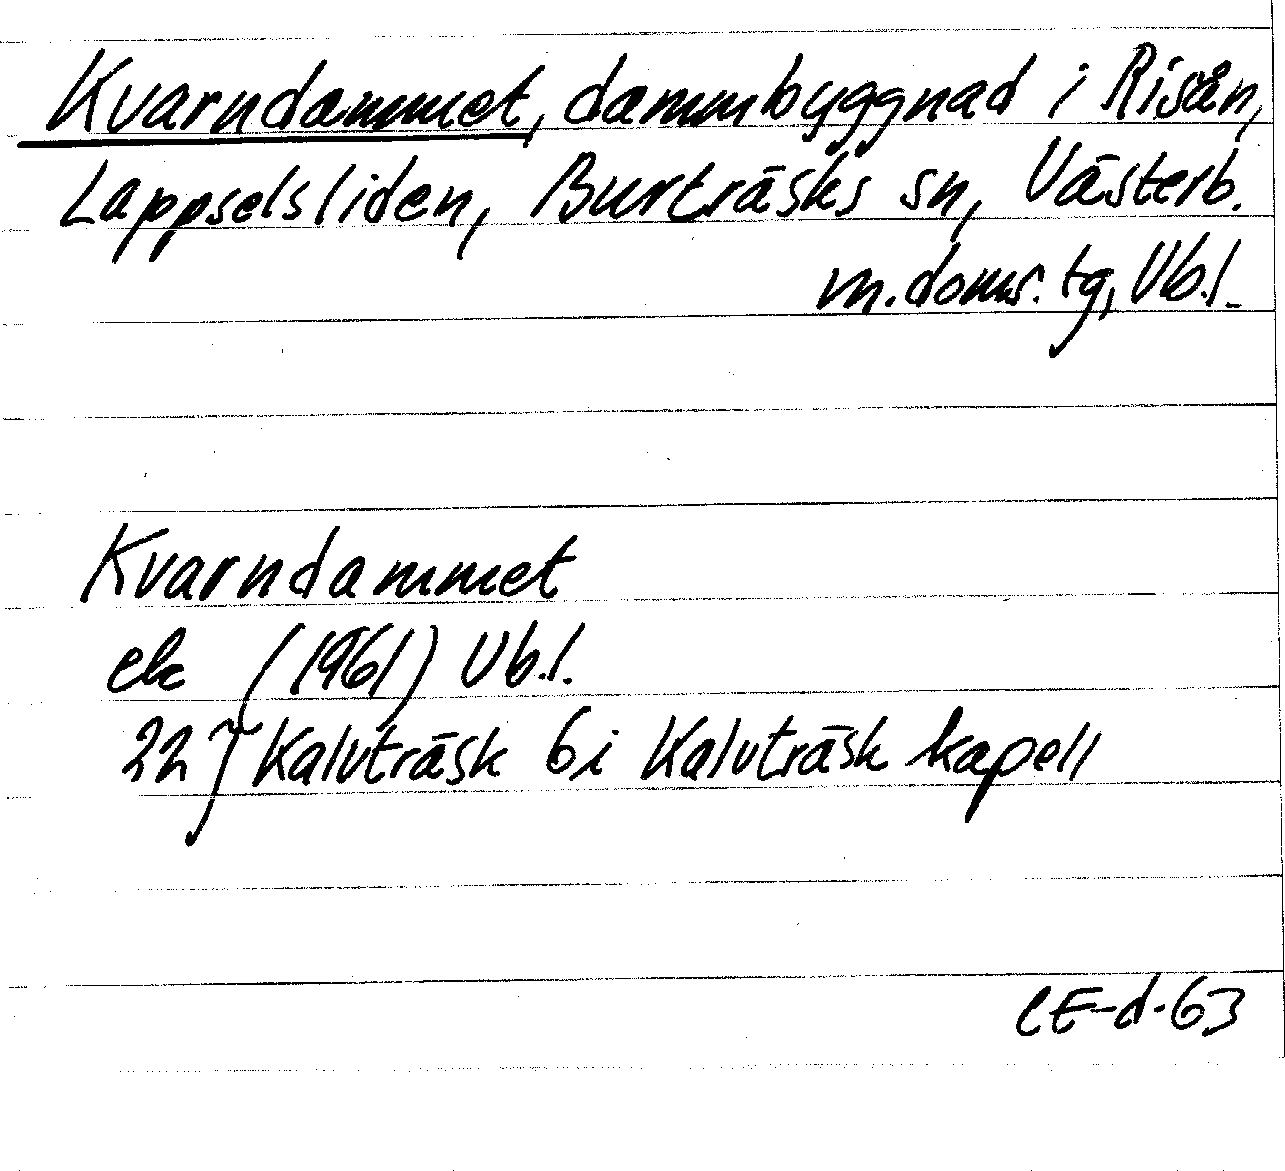 Kvarndammet, dammbyggnad i Risån,
Lappselsliden, Burträsks sn, Västerb.
m. doms. tg, Vb.l.
Kvarndammet
ek (1961) Vb.l.
22J Kalvträsk 6i Kalvträsk kapell
CE-d-63